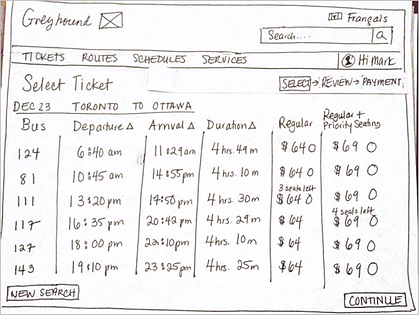 Greyhound
Français
Search....
TICKETS ROUTES SCHEDULES SERVICES
Hi Mark
Select Ticket
SELECT → REVIEW → PAYMENT
DEC 23 TORONTO TO OTTAWA
Bus Departure Δ Arrival Δ Duration Δ Regular Regular + Priority Seating
124 6:40 am 11:29am 4 hrs. 49 m $64 $69
81 10:45 am 14:55pm 4 hrs. 10 m $64 $69
3 seats left
111 13:20pm 17:50pm 4 hrs. 30m $64 $69
4 seats left
117 16:35 pm 20:42 pm 4 hrs. 29m $64 $69
127 18:00 pm 22:10pm 4hrs. 10m $64 $69
143 19:10 pm 23:25pm 4 hrs. 25m $64 $69
NEW SEARCH
CONTINUE